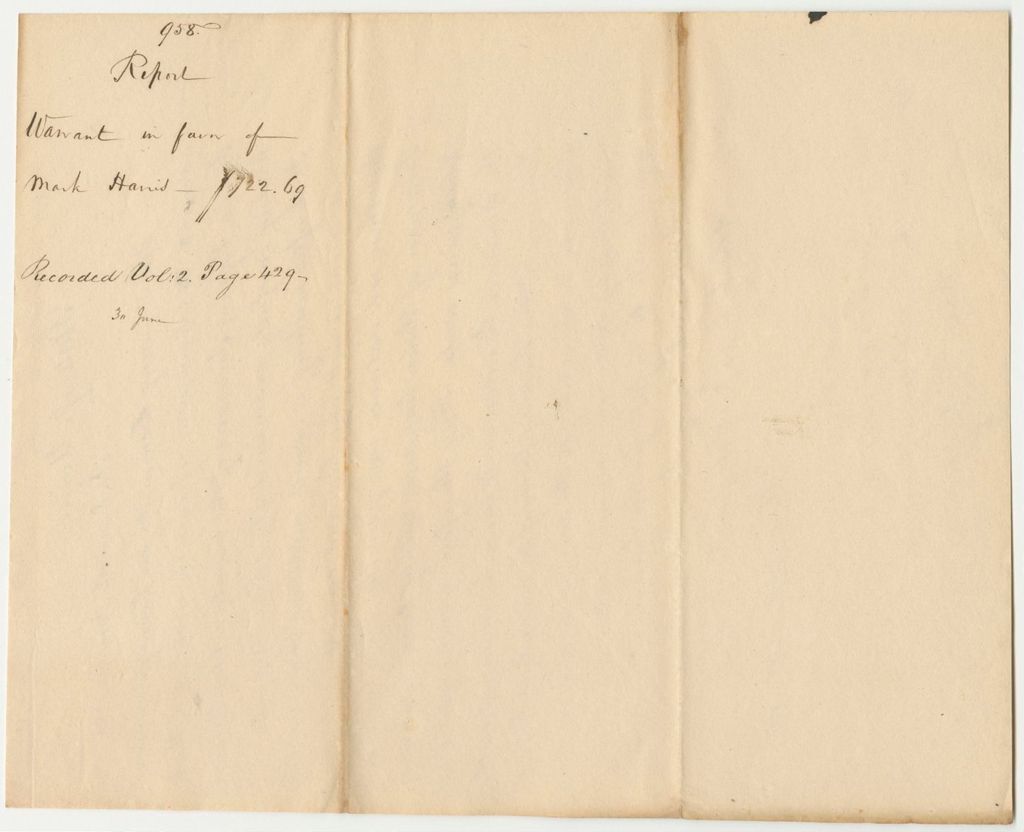 958.
Report
Warrant in favor of
Mark Harris — $722.69
Recorded Vol: 2. Page 429—
30 June